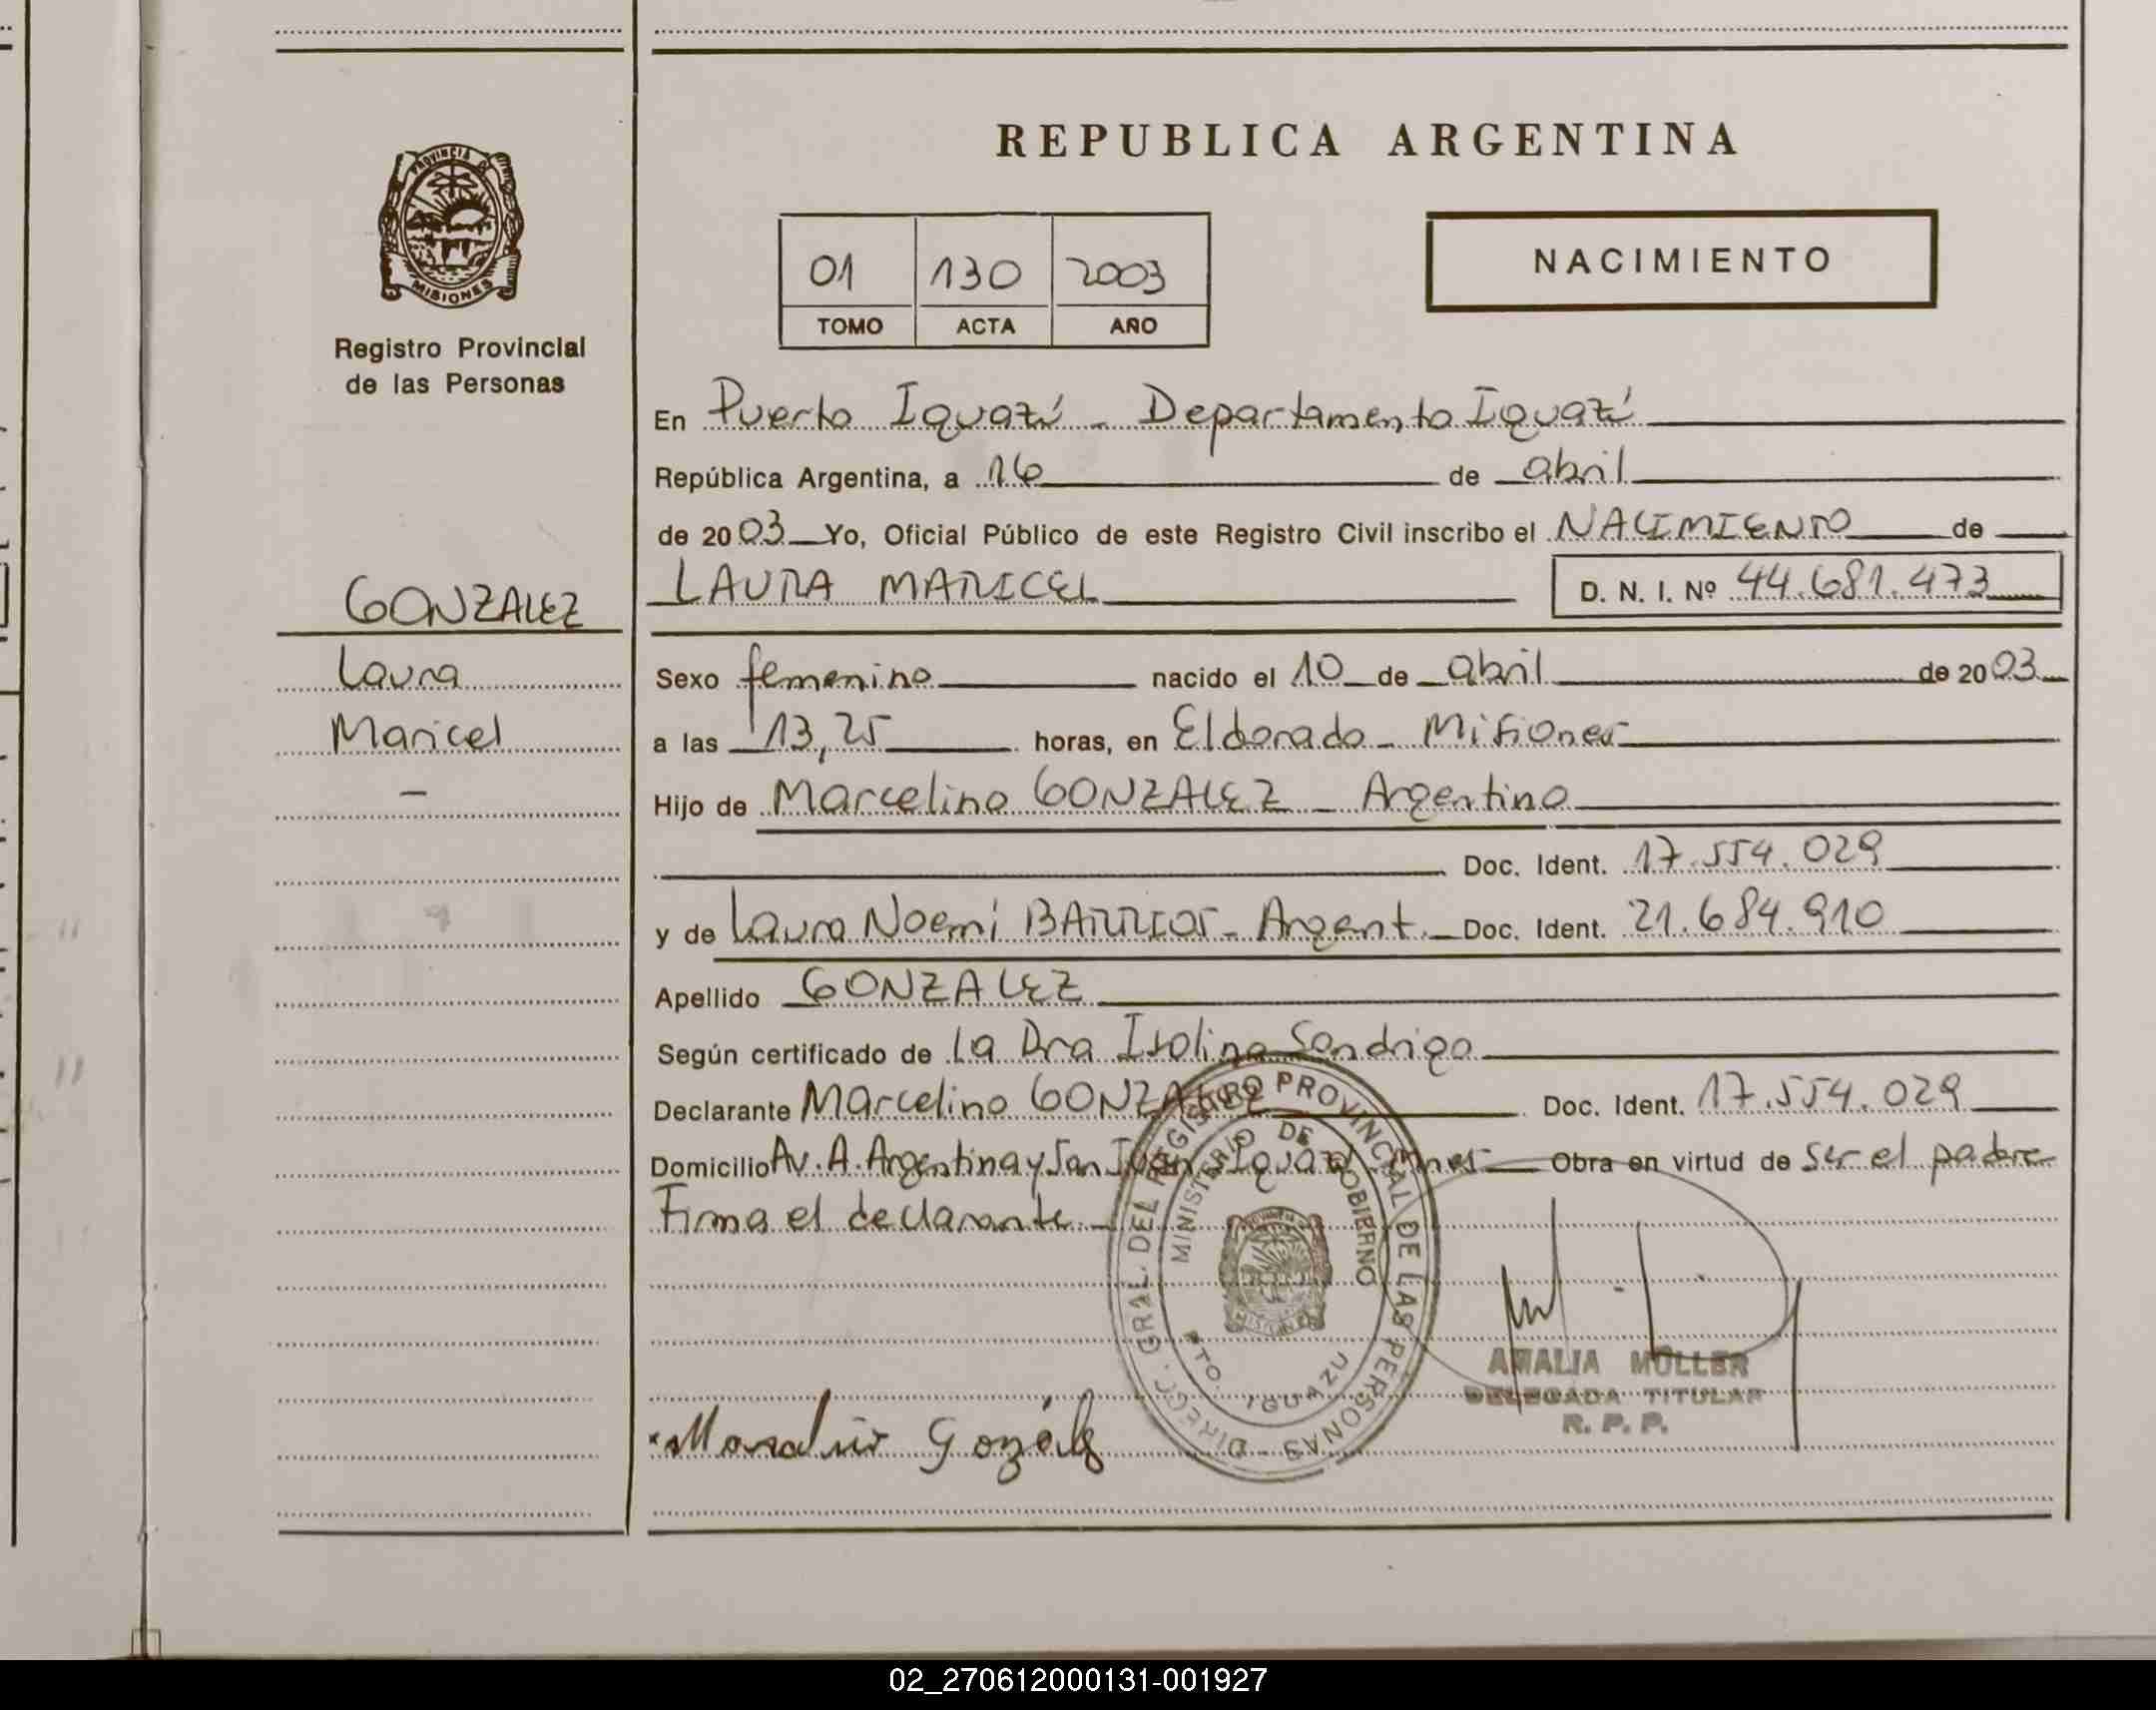 REPUBLICA ARGENTINA
PROVINCIA DE
MISIONES
Registro Provincial
de las Personas
01 130 2003
TOMO ACTA AÑO
NACIMIENTO
En Puerto Iguazú - Departamento Iguazú
República Argentina, a 16 de abril
de 2003 Yo, Oficial Público de este Registro Civil inscribo el NACIMIENTO de
LAURA MARICEL D. N. I. Nº 44.681.473
GONZALEZ
Laura
Maricel
-
Sexo femenino nacido el 10 de abril de 2003
a las 13,25 horas, en Eldorado - Misiones
Hijo de Marcelino GONZALEZ - Argentino
Doc. Ident. 17.554.029
y de Laura Noemí BARRIOS - Argent. Doc. Ident. 21.684.910
Apellido GONZALEZ
Según certificado de La Dra Isolina Sandrigo
Declarante Marcelino GONZALEZ Doc. Ident. 17.554.029
Domicilio Av. A. Argentina y San Juan - Iguazú Mnes - Obra en virtud de ser el padre
Firma el declarante -
DIRECC. GRAL. DEL REGISTRO PROVINCIAL DE LAS PERSONAS
MINISTERIO DE GOBIERNO
PTO. IGUAZU
AMALIA MÜLLER
DELEGADA TITULAR
R. P. P.
02_270612000131-001927